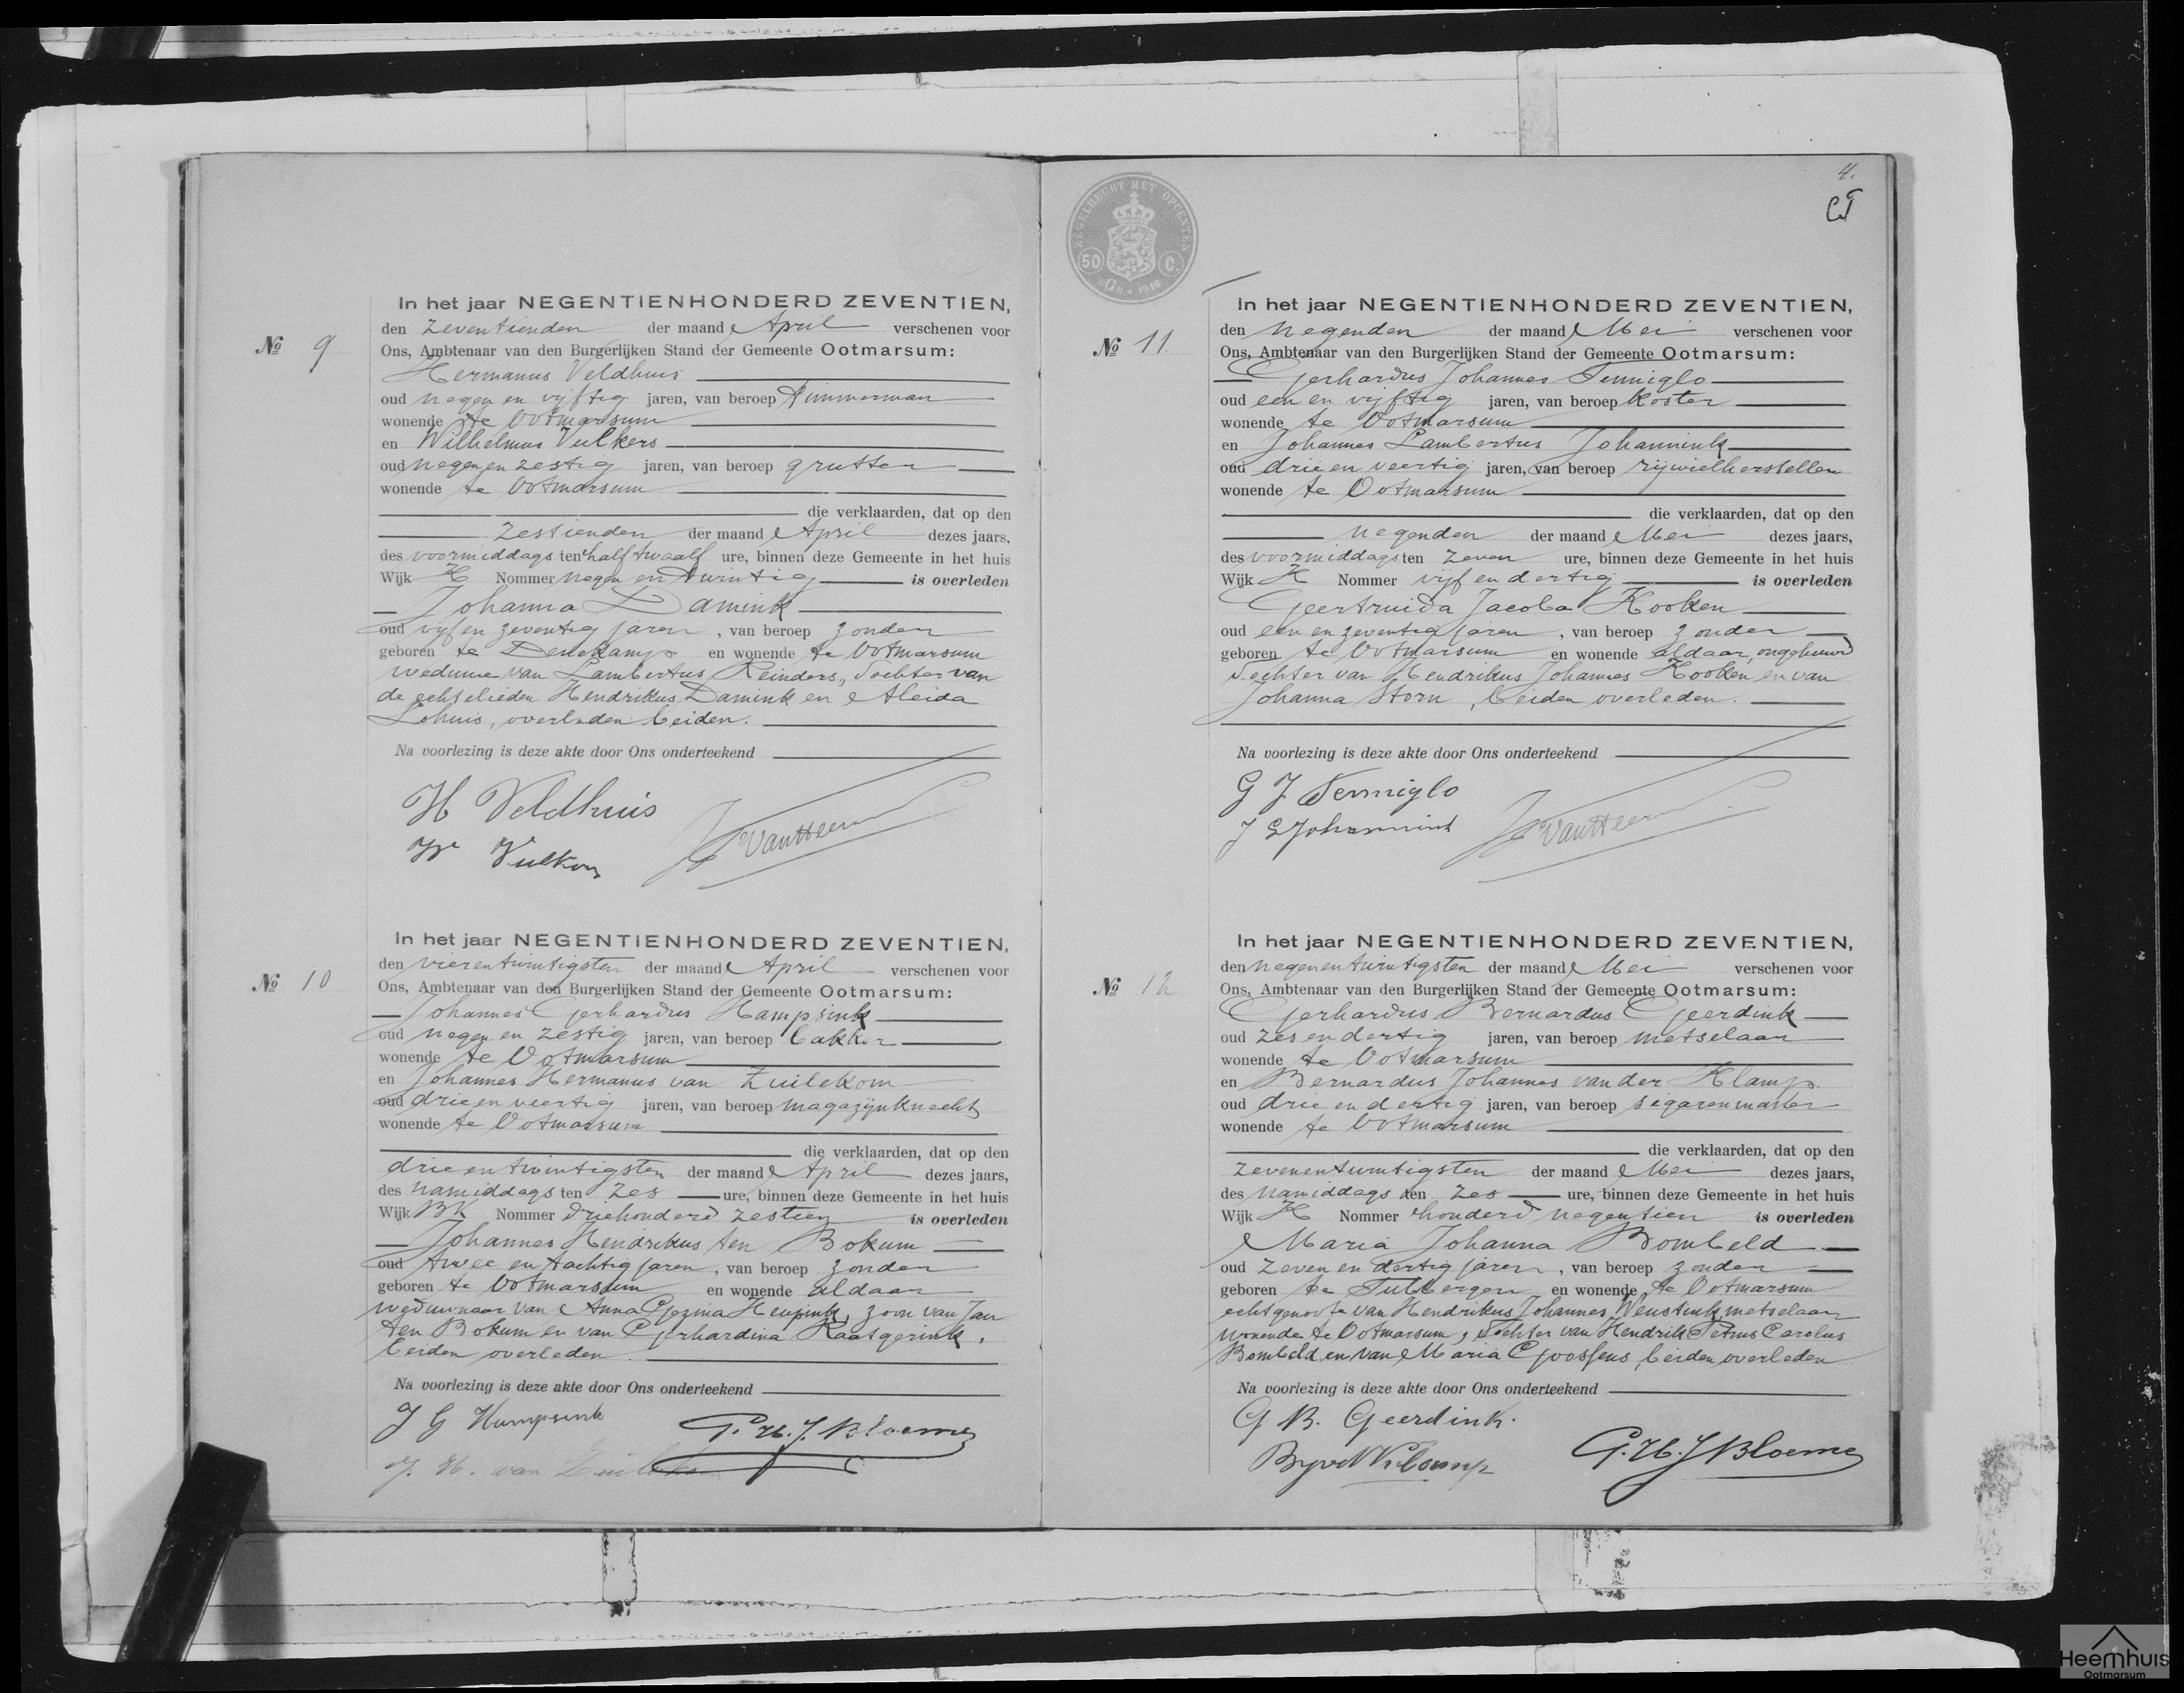 In het jaar NEGENTIENHONDERD ZEVENTIEN,
den zeventienden der maand April verschenen voor
№ 9
Ons, Ambtenaar van den Burgerlijken Stand der Gemeente Ootmarsum:
Hermanus Veldhuis
oud negen en vijftig jaren, van beroep timmerman
wonende te Ootmarsum
en Wilhelmus Vulkers
oud negen en zestig jaren, van beroep grutter
wonende te Ootmarsum
die verklaarden, dat op den
zestienden der maand April dezes jaars,
des voormiddags ten half twaalf ure, binnen deze Gemeente in het huis
Wijk H Nommer negen en twintig is overleden
Johanna Damink
oud vijf en zeventig jaren, van beroep zonder
geboren te Denekamp en wonende te Ootmarsum
weduwe van Lambertus Reinders, dochter van
de echtelieden Hendrikus Damink en Aleida
Lohuis, overleden beiden.
Na voorlezing is deze akte door Ons onderteekend
H Veldhuis
W Vulkers
In het jaar NEGENTIENHONDERD ZEVENTIEN,
den vierentwintigsten der maand April verschenen voor
№ 10
Ons, Ambtenaar van den Burgerlijken Stand der Gemeente Ootmarsum:
Johannes Gerhardus Kampsink
oud negen en zestig jaren, van beroep bakker
wonende te Ootmarsum
en Johannes Hermanus van Zuilekom
oud drie en veertig jaren, van beroep magazijnknecht
wonende te Ootmarsum
die verklaarden, dat op den
drieentwintigsten der maand April dezes jaars,
des namiddags ten zes ure, binnen deze Gemeente in het huis
Wijk BK Nommer driehonderd zestien is overleden
Johannes Hendrikus ten Bokum
oud twee en tachtig jaren, van beroep zonder
geboren te Ootmarsum en wonende aldaar
weduwnaar van Anna Gezina Heupink, zoon van Jan
ten Bokum en van Gerhardina Raasgerink,
beiden overleden.
Na voorlezing is deze akte door Ons onderteekend
J G Kampsink
G. H. J. Bloemen
J. H. van Zuilekom
4.
ZEGELRECHT MET OPCENTEN
50 C.
GR. 1916
In het jaar NEGENTIENHONDERD ZEVENTIEN,
den negenden der maand Mei verschenen voor
№ 11.
Ons, Ambtenaar van den Burgerlijken Stand der Gemeente Ootmarsum:
Gerhardus Johannes Tenniglo
oud een en vijftig jaren, van beroep koster
wonende te Ootmarsum
en Johannes Lambertus Johannink
oud drie en veertig jaren, van beroep rijwielhersteller
wonende te Ootmarsum
die verklaarden, dat op den
negenden der maand Mei dezes jaars,
des voormiddags ten zeven ure, binnen deze Gemeente in het huis
Wijk H Nommer vijf en dertig is overleden
Geertruida Jacoba Kooken
oud een en zeventig jaren, van beroep zonder
geboren te Ootmarsum en wonende aldaar, ongehuwd
dochter van Hendrikus Johannes Kooken en van
Johanna Storn, beiden overleden.
Na voorlezing is deze akte door Ons onderteekend
G J Tenniglo
J L Johannink
In het jaar NEGENTIENHONDERD ZEVENTIEN,
den negenentwintigsten der maand Mei verschenen voor
№ 12
Ons, Ambtenaar van den Burgerlijken Stand der Gemeente Ootmarsum:
Gerhardus Bernardus Geerdink
oud zes en dertig jaren, van beroep metselaar
wonende te Ootmarsum
en Bernardus Johannes van der Klamp
oud drie en dertig jaren, van beroep sigarenmaker
wonende te Ootmarsum
die verklaarden, dat op den
zevenentwintigsten der maand Mei dezes jaars,
des namiddags ten zes ure, binnen deze Gemeente in het huis
Wijk H Nommer honderd negentien is overleden
Maria Johanna Bombeld
oud zeven en dertig jaren, van beroep zonder
geboren te Tubbergen en wonende te Ootmarsum
echtgenoote van Hendrikus Johannes Wenstink metselaar
wonende te Ootmarsum, dochter van Hendrik Petrus Carolus
Bombeld en van Maria Goossens, beiden overleden
Na voorlezing is deze akte door Ons onderteekend
G B. Geerdink.
G. H. J Bloemen
Heemhuis
Ootmarsum